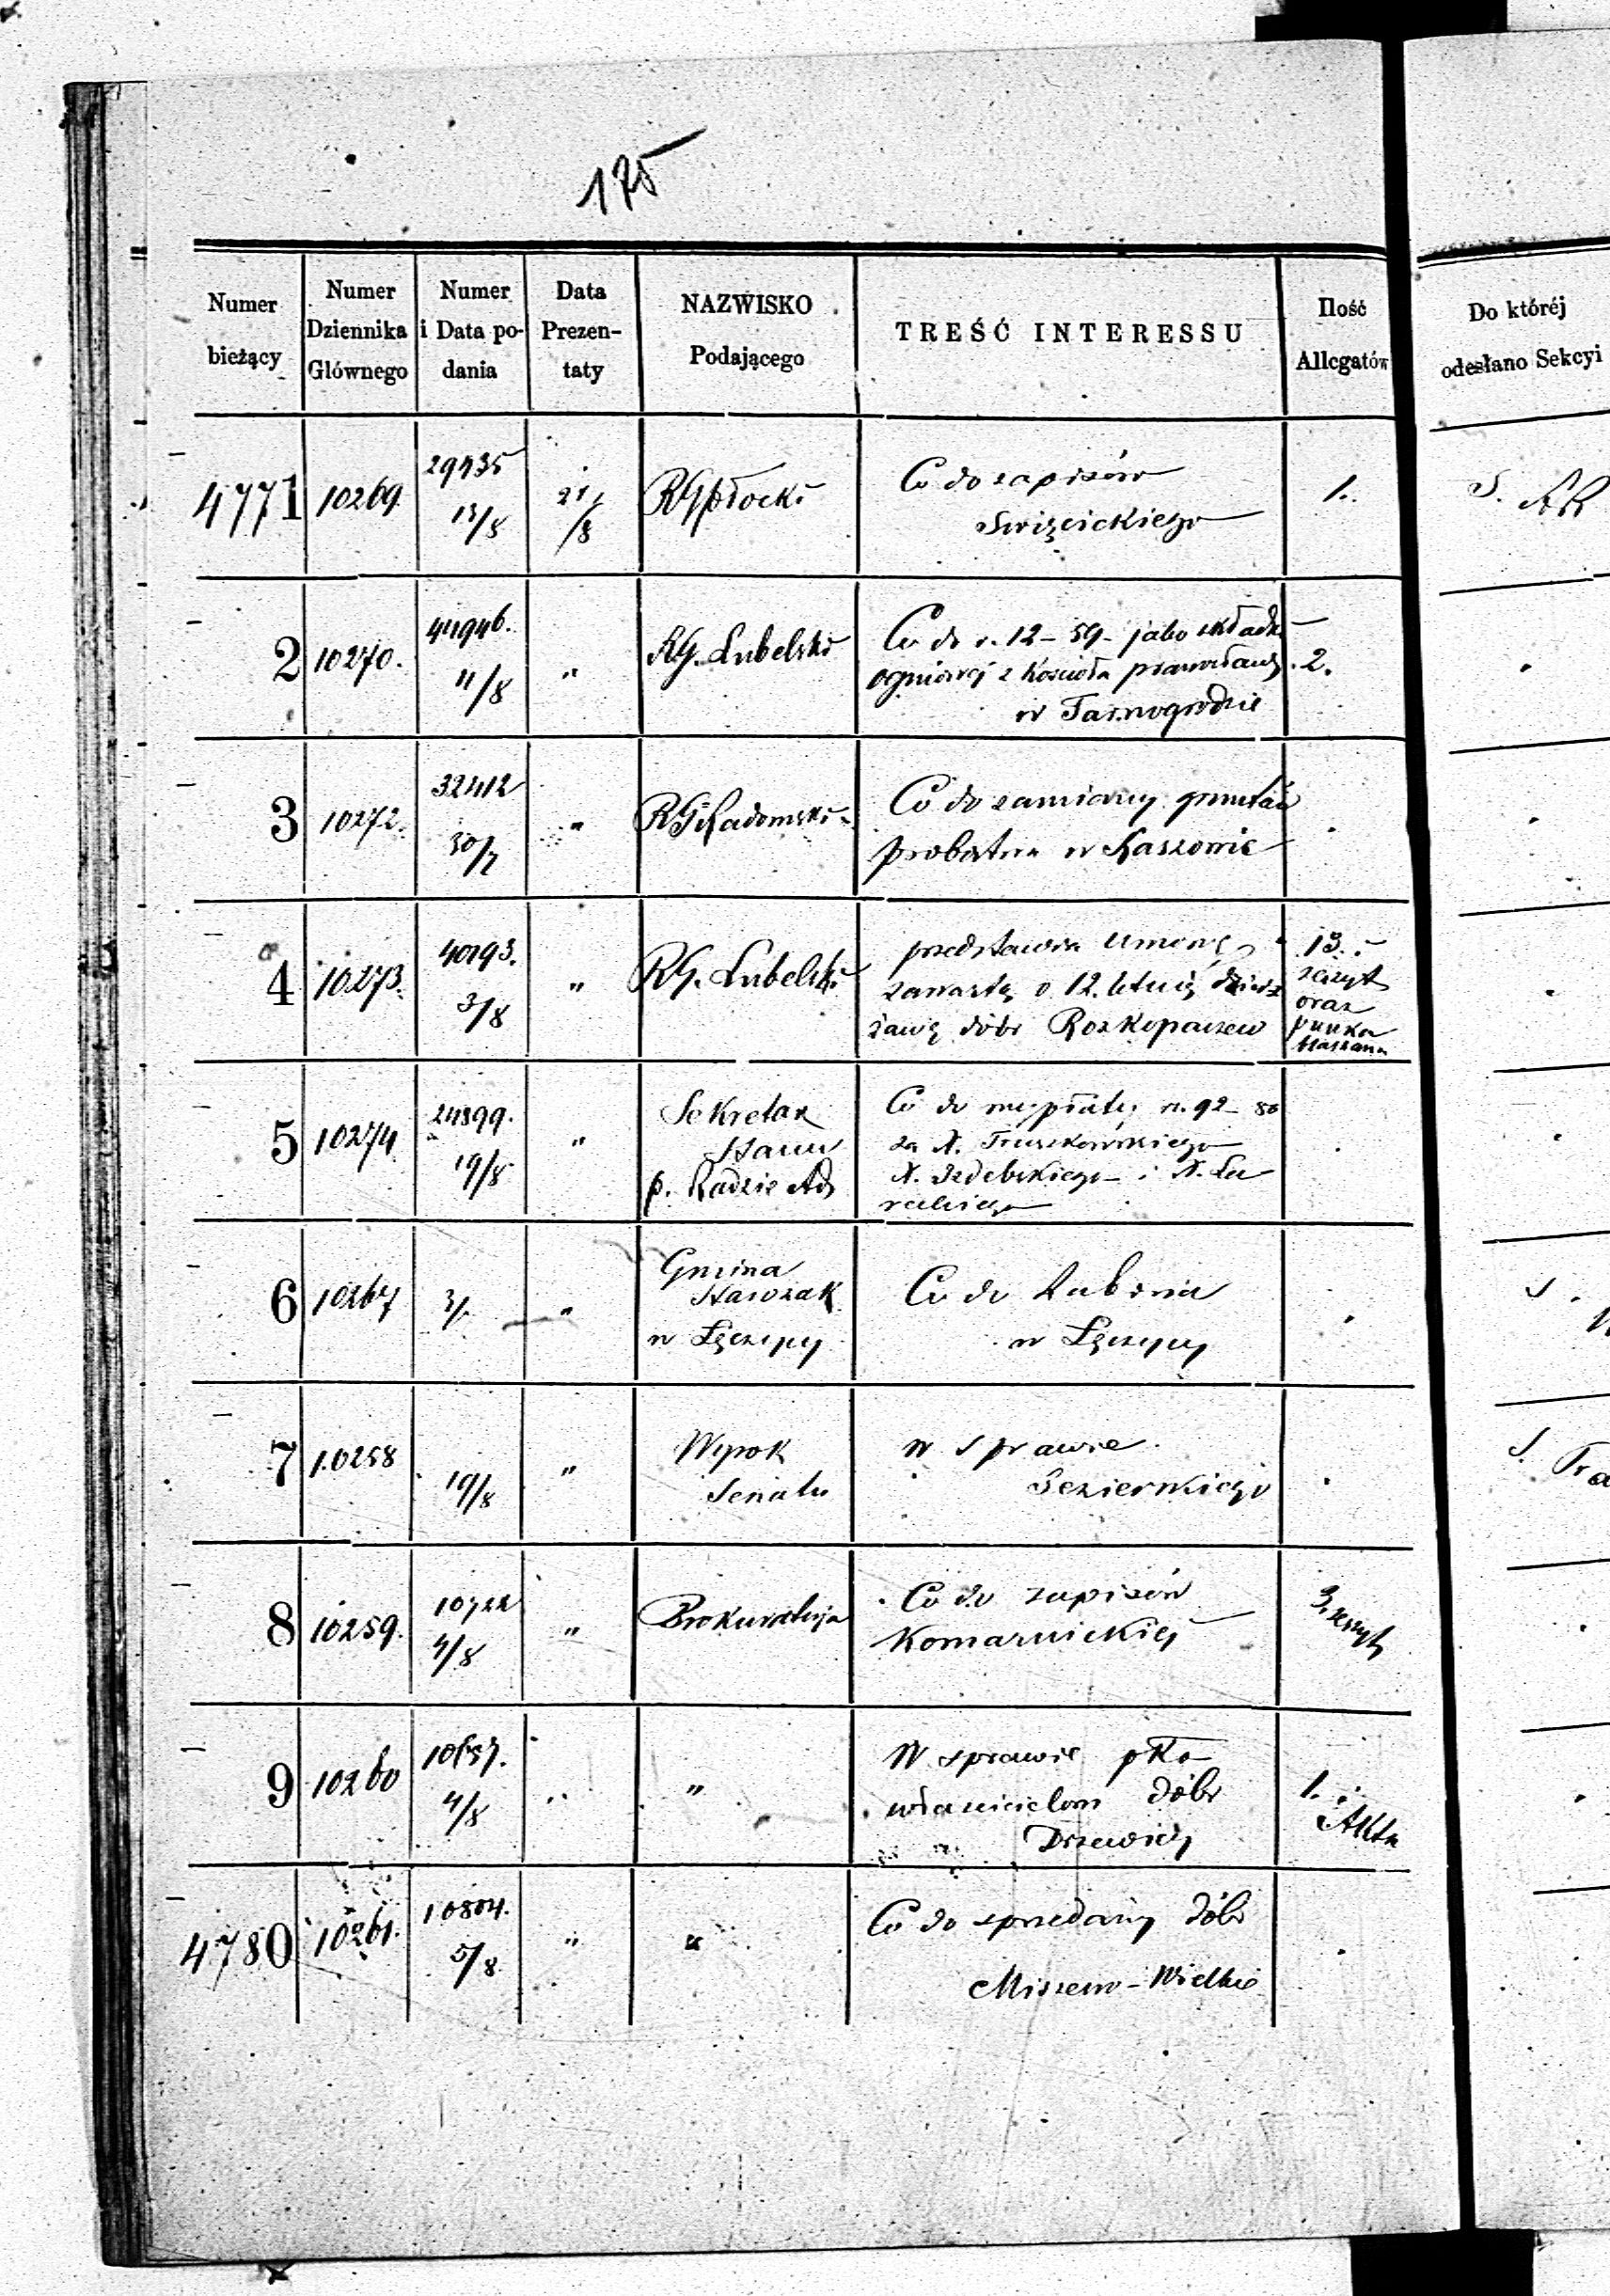 175
Numer bieżący
Numer Dziennika Głównego
Numer i Data podania
Data Prezentaty
NAZWISKO Podającego
TREŚĆ INTERESSU
Ilość Allegatów
Do któréj odesłano Sekcyi
4771 10269 29735 13/8 21/8 RG Płocki
Co do zapisów
Swięcickiego
1.
S.
2 10270. 44946. 11/8 " RG. Lubelski
Co do r. 12-59- jako składki
ogniowej z kościoła
w Tarnogrodzie
2.
3 10272. 32412 30/7 " RG Radomski
Co do zamiany gruntów
probostwa w Kaszowie
4 10273. 40193. 3/8 " RG. Lubelski
przedstawia umowę
zawartą o 12. letnią dzier
żawę dóbr Rozkopaczew
13.
zeszyt
oraz
blaszana
5 10274 24399. 19/8 "
Sekretarz
Stanu
p. Radzie Ad
Co do wypłaty r. 92-80
za X. Truszkowskiego
X. Izdebskiego i X.
6 10267 3/. "
Gmina
Starozak
w Łęczycy
Co do Rabina
w Łęczycy
S.
7 10258 19/8 "
Wyrok
Senatu
W sprawie
Jezierskiego
S.
8 10259. 10722 4/8 " Prokuratorja
Co do zapisów
Komarnickiej
3. zeszyty
9 10260 10657. 4/8 " "
W sprawie pko
właścicielom dóbr
Drzewicy
1.
Akta
4780 10261. 10804. 5/8 " "
Co do sprzedaży dóbr
Miszewo-Wielkie